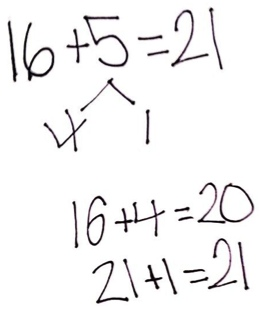 16+5=21
4 1
16+4=20
21+1=21